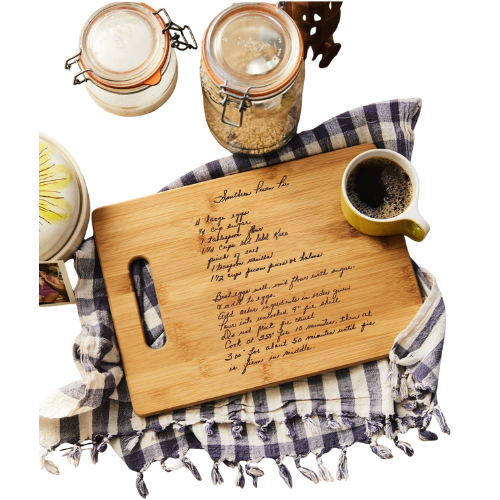 Southern Pecan Pie
4 large eggs
3/4 cup sugar
1 tablespoon flour
1 1/4 cups red label Karo
pinch of salt
1 teaspoon vanilla
1 1/2 cups pecan pieces or halves
Beat eggs well, mix flour with sugar.
& add to eggs.
Add other ingredients in order given
Pour into unbaked 9" pie shell
Do not prick pie crust
Cook at 350° for 10 minutes, then at
300 for about 50 minutes until pie
is firm in middle